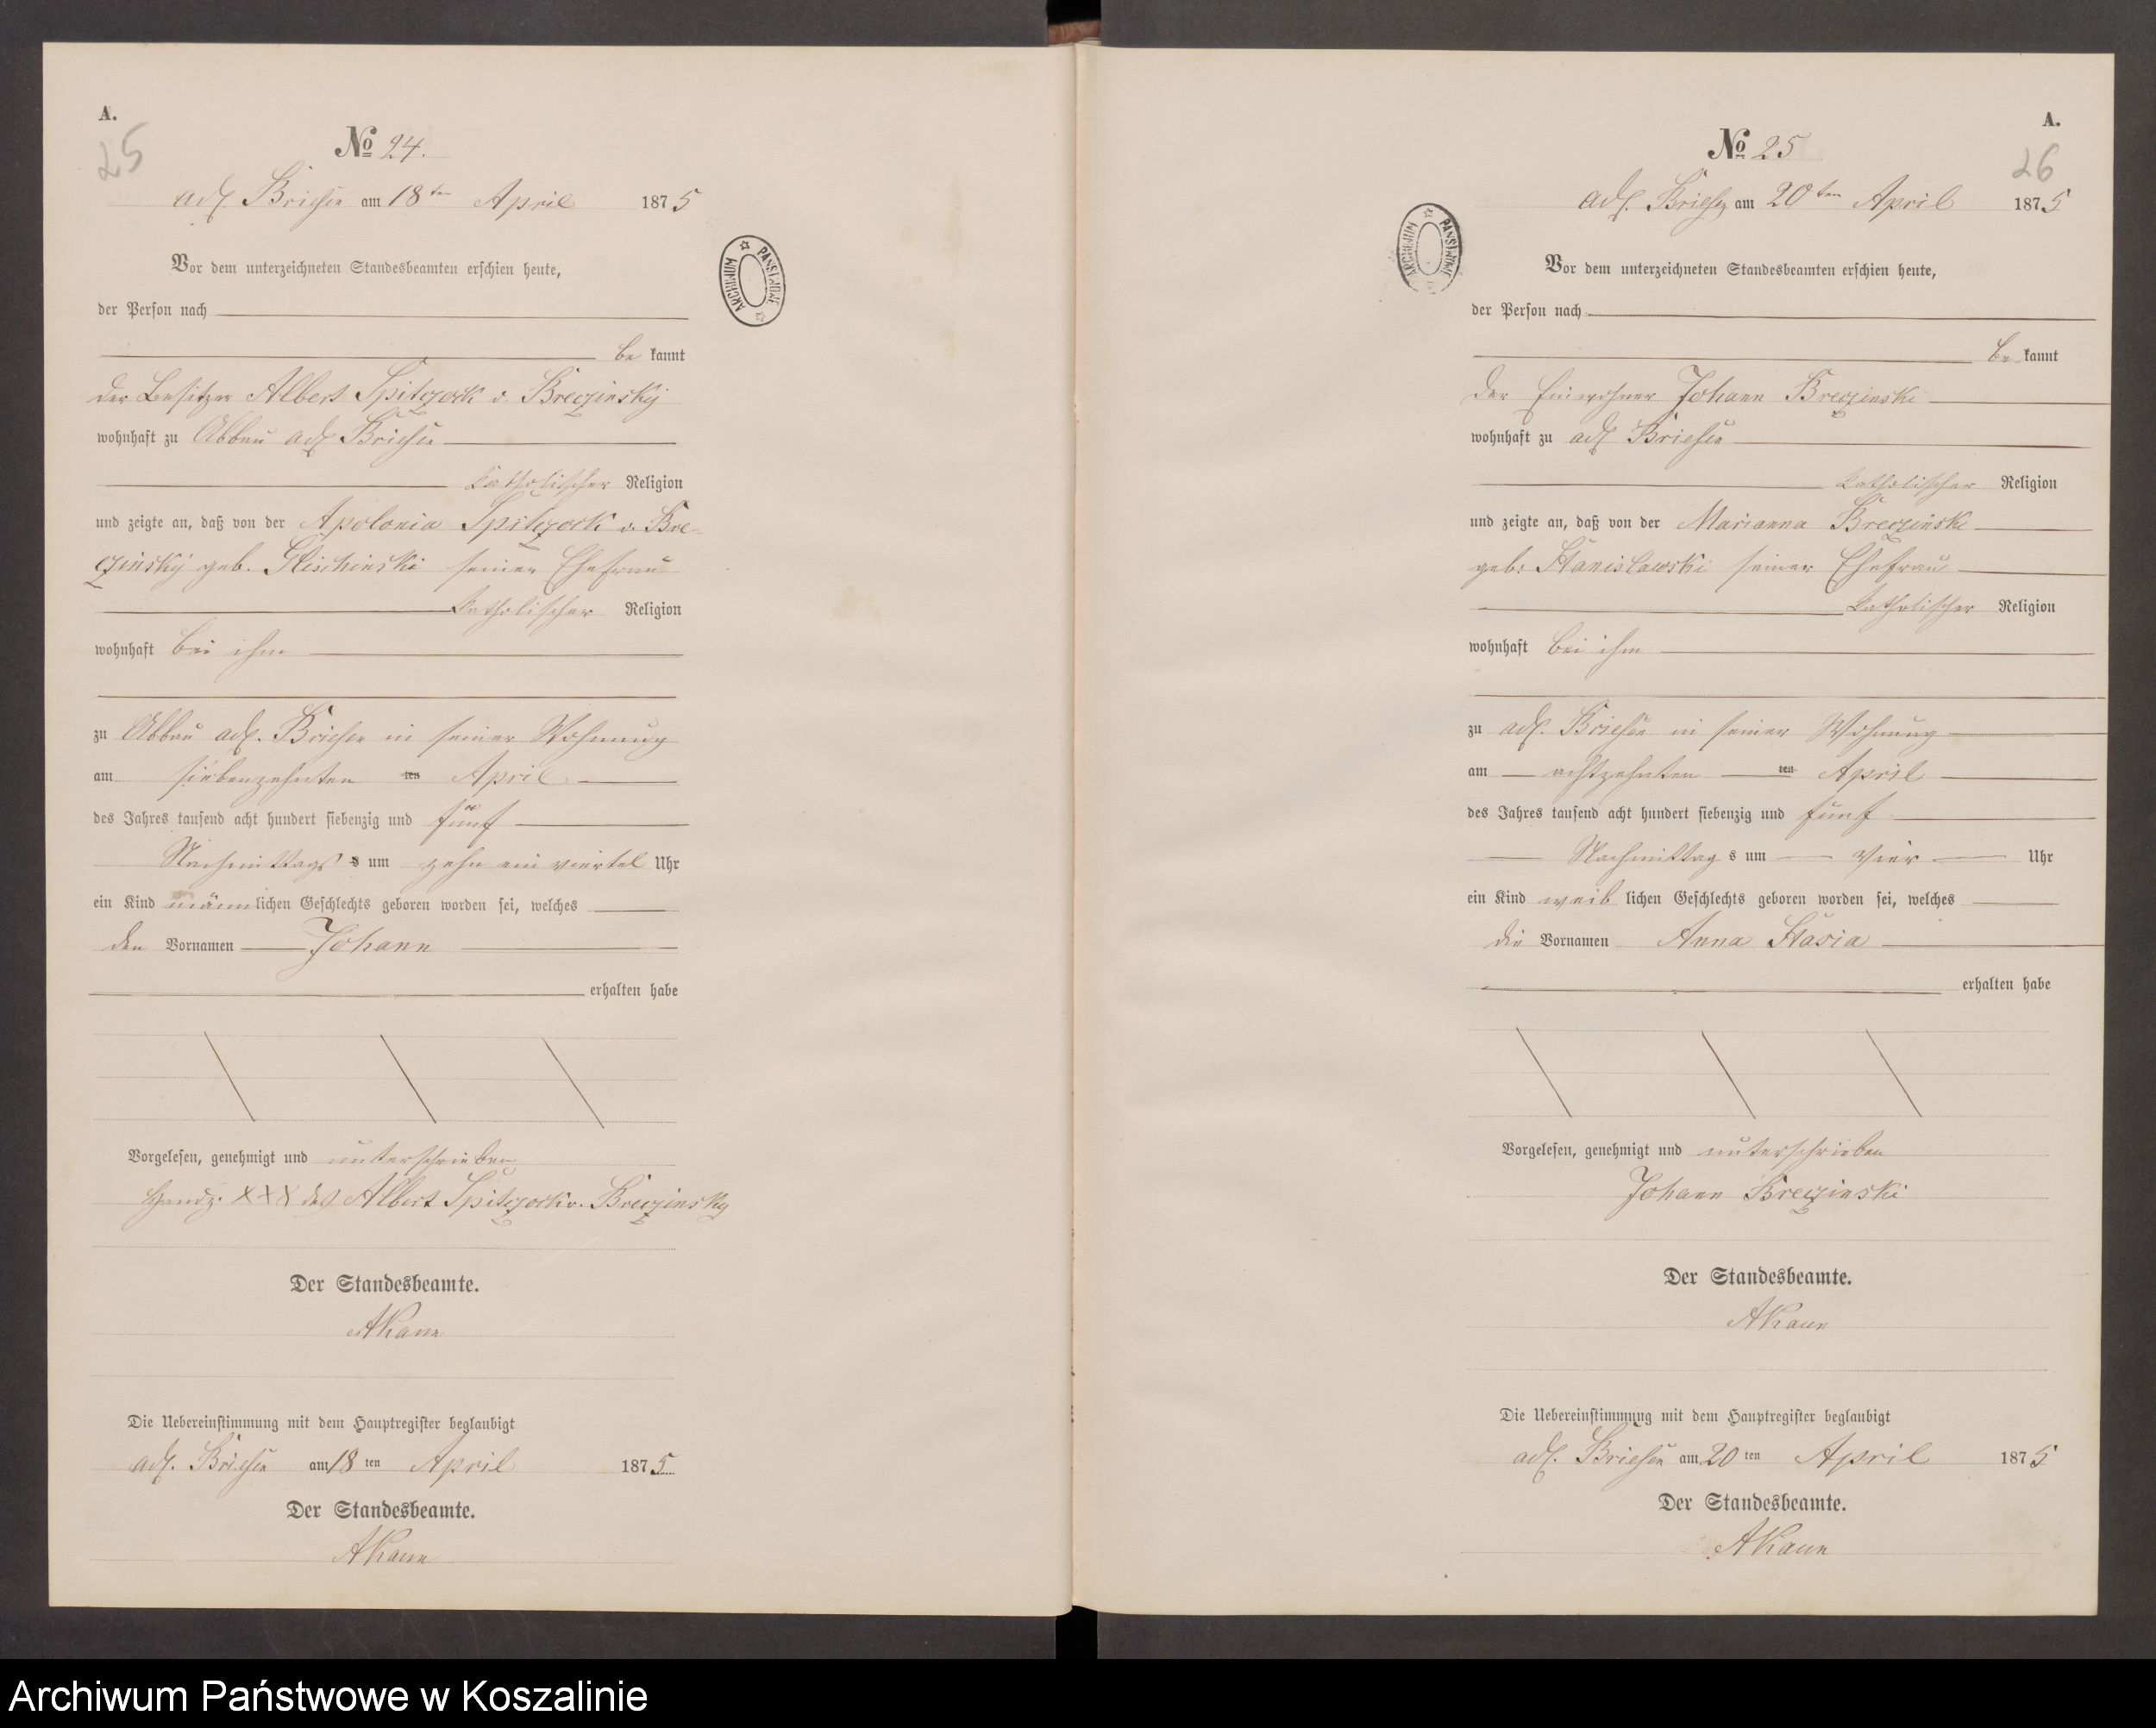 A.
25
No 24.
adl. Briesen am 18ten April 1875
Vor dem unterzeichneten Standesbeamten erschien heute,
der Person nach
be kannt
der Besitzer Albert Spitczock v. Breczinsky
wohnhaft zu Abbau adl Briesen
katholischer Religion
und zeigte an, daß von der Apolonia Spitczock v. Bre-
czinsky geb. Glischinski seiner Ehefrau
katholischer Religion
wohnhaft bei ihm
zu Abbau adl. Briesen in seiner Wohnung
am siebenzehnten ten April
des Jahres tausend acht hundert siebenzig und fünf
Nachmittags s um zehn ein viertel Uhr
ein Kind männlichen Geschlechts geboren worden sei, welches
den Vornamen Johann
erhalten habe
Vorgelesen, genehmigt und unterschrieben
Handz. XXX des Albert Spitczock v. Breczinsky
Der Standesbeamte.
AKann
Die Uebereinstimmung mit dem Hauptregister beglaubigt
adl. Briesen am 18 ten April 1875
Der Standesbeamte.
AKann
ARCHIWUM PAŃSTWOWE
A.
26
No 25
adl. Briesen am 20ten April 1875
Vor dem unterzeichneten Standesbeamten erschien heute,
der Person nach
be kannt
der Einwohner Johann Breczinski
wohnhaft zu adl Briesen
katholischer Religion
und zeigte an, daß von der Marianna Breczinski
geb. Stanislawski seiner Ehefrau
katholischer Religion
wohnhaft bei ihm
zu adl. Briesen in seiner Wohnung
am achtzehnten ten April
des Jahres tausend acht hundert siebenzig und fünf
Nachmittag s um vier Uhr
ein Kind weib lichen Geschlechts geboren worden sei, welches
die Vornamen Anna Stasia
erhalten habe
Vorgelesen, genehmigt und unterschrieben
Johann Breczinski
Der Standesbeamte.
AKann
Die Uebereinstimmung mit dem Hauptregister beglaubigt
adl. Briesen am 20 ten April 1875
Der Standesbeamte.
AKann
ARCHIWUM PAŃSTWOWE
Archiwum Państwowe w Koszalinie